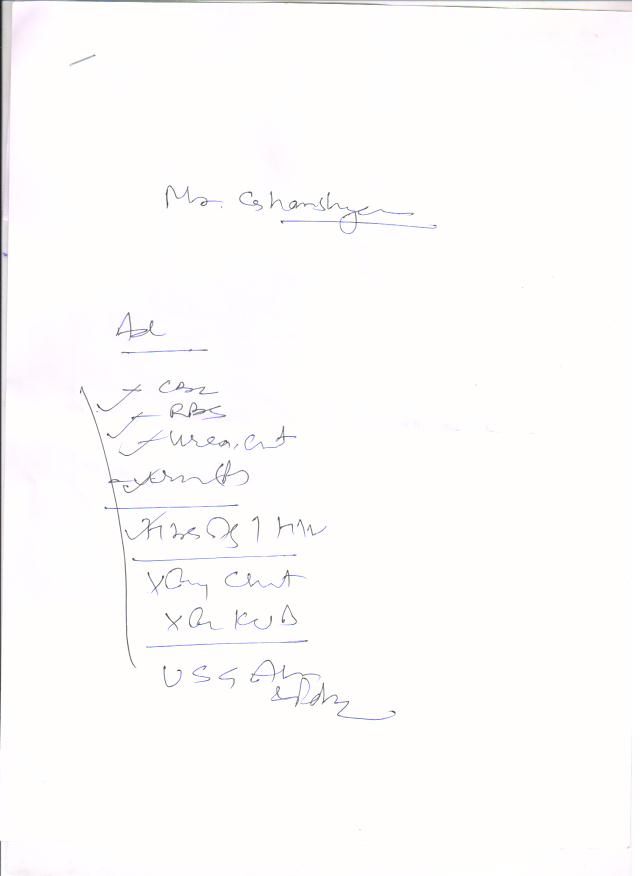 Mr. Ghanshyam
Ad
CBC
RBS
Urea, Crt
HBsAg / HIV
XRay Chest
XRay KUB
USG Abd
& Pelvis